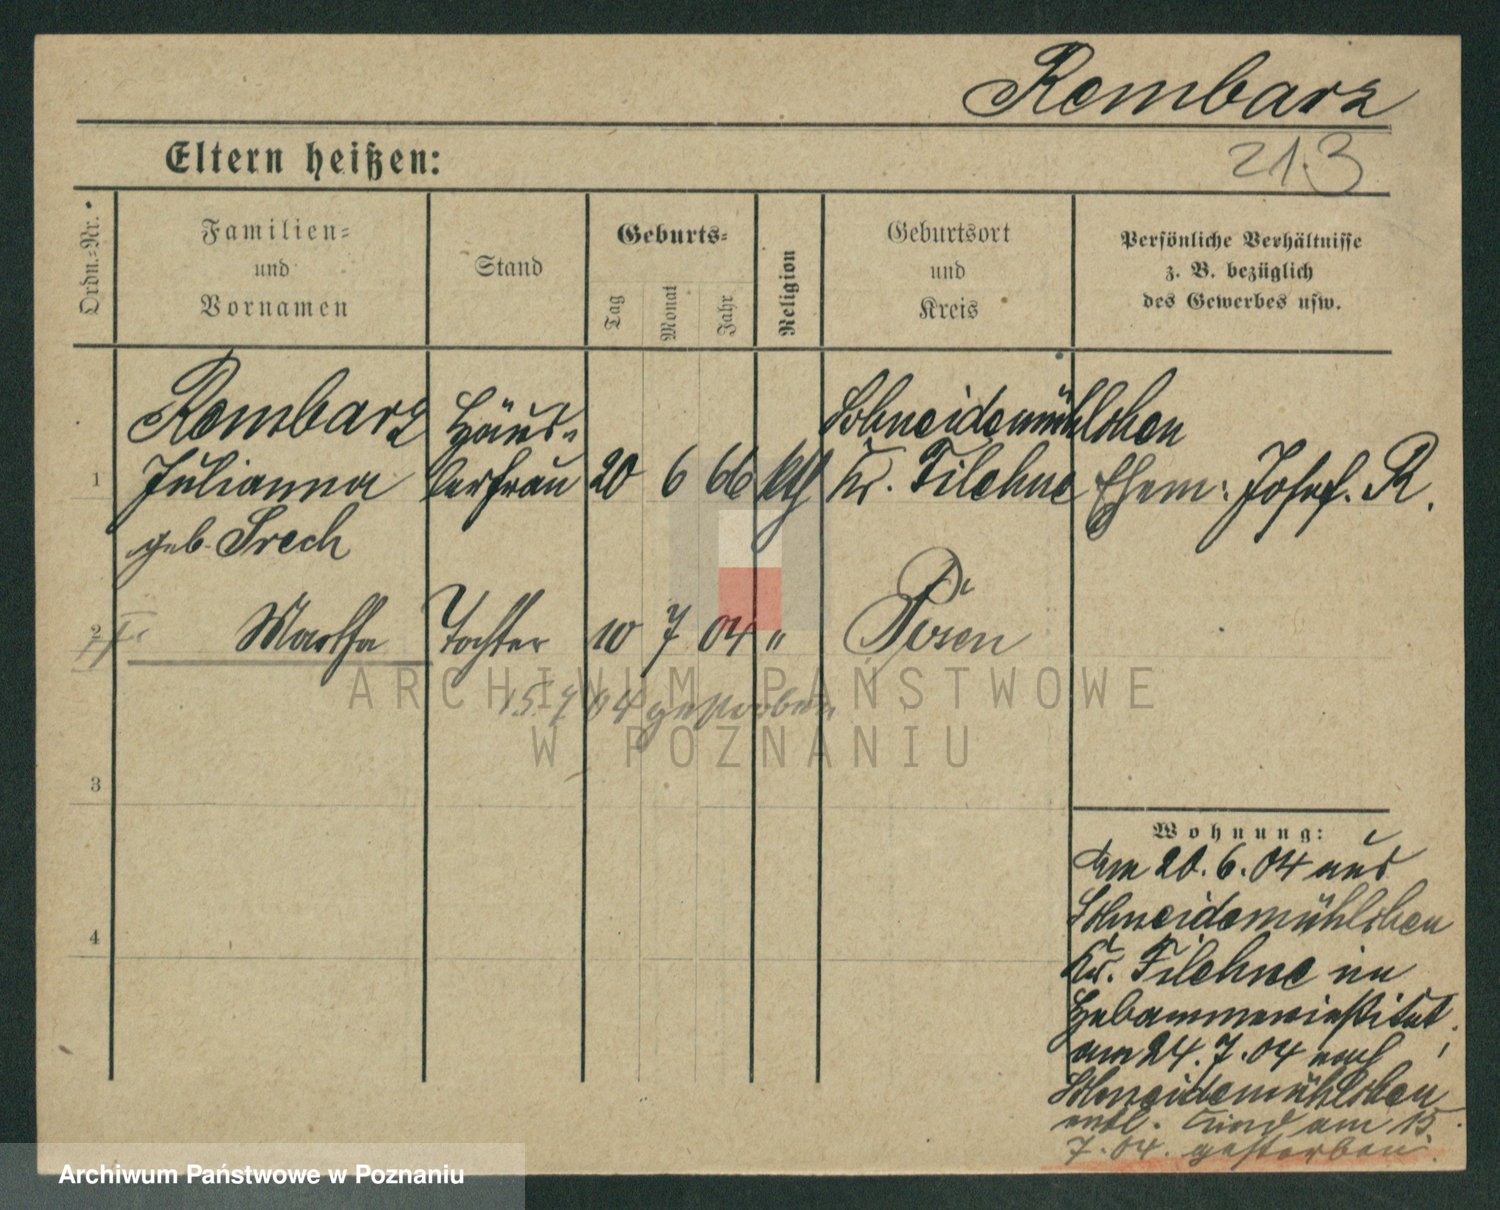 Rembarz
Eltern heißen:
213
Ordn.-Nr.
Familien-
und
Vornamen
Stand
Geburts-
Tag
Monat
Jahr
Religion
Geburtsort
und
Kreis
Persönliche Verhältnisse
z. B. bezüglich
des Gewerbes usw.
1
Rembarz
Julianna
geb. Srech
Häus-
lerfrau
20 6 66 kth
Schneidemühlchen
Kr. Filehne
Ehem: Josef. R.
2
Martha Tochter 10 7 04 " Posen
15.7.04 gestorben
3
4
Wohnung:
Am 20.6.04 aus
Schneidemühlchen
Kr. Filehne im
Hebammeninstitut,
am 24.7.04 nach
Schneidemühlchen
entl. Kind am 15.
7.04. gestorben.
ARCHIWUM PAŃSTWOWE
W POZNANIU
Archiwum Państwowe w Poznaniu